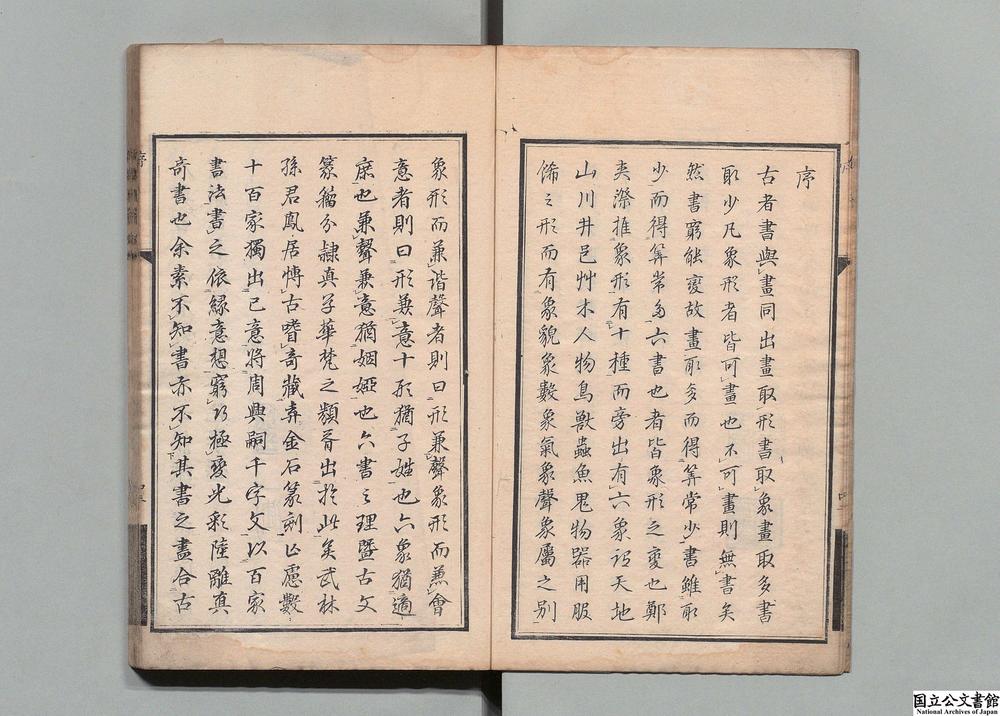 序
古者書與畫同出畫取形書取象畫取多書
取少凡象形者皆可畫也不可畫則無書矣
然書窮能變故畫取多而得筭常少書雖取
少而得筭常多六書也者皆象形之變也鄭
夾漈推象形有十種而旁出有六象謂天地
山川井邑艸木人物鳥獸蟲魚鬼物器用服
飾之形而有象貌象數象氣象聲象屬之別
象形而兼諧聲者則曰形兼聲象形而兼會
意者則曰形兼意十形猶子姓也六象猶適
庶也兼聲兼意猶姻婭也六書之理暨古文
篆籀分隸真子華梵之類胥出於此矣武林
孫君鳳居博古嗜奇藏弆金石篆刻亡慮數
十百家獨出己意將周興嗣千字文以百家
書法書之依緣意想窮巧極變光彩陸離真
奇書也余素不知書亦不知其書之盡合古
序
国立公文書館
National Archives of Japan